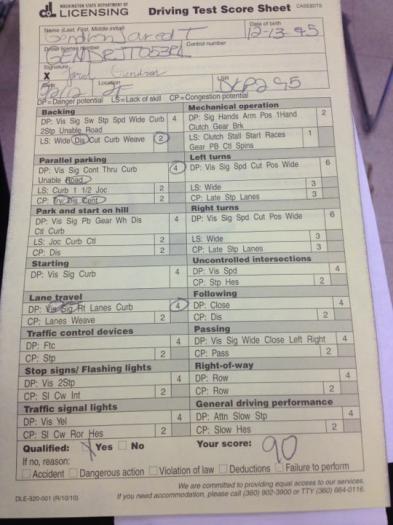 WASHINGTON STATE DEPARTMENT OF
dol LICENSING Driving Test Score Sheet
Name (Last, First, Middle initial) Date of birth
Gendron Jared T 12-13-95
Driver license number Control number
Signature
X Jared Gendron
Location
DP=Danger potential LS=Lack of skill CP=Congestion potential
Backing Mechanical operation
DP: Vis Sig Sw Stp Spd Wide Curb 4 DP: Sig Hands Arm Pos 1Hand 2
2Stp Unable Road Clutch Gear Brk
LS: Wide Dis Cut Curb Weave 2 LS: Clutch Stall Start Races 1
Gear PB Ctl Spins
Parallel parking Left turns
DP: Vis Sig Cont Thru Curb 4 DP: Vis Sig Spd Cut Pos Wide 6
Unable Road
LS: Curb 1 1/2 Joc 2 LS: Wide 3
CP: Try Dis Cont 2 CP: Late Stp Lanes 3
Park and start on hill Right turns
DP: Vis Sig Pb Gear Wh Dis 4 DP: Vis Sig Spd Cut Pos Wide 6
Ctl Curb
LS: Joc Curb Ctl 2 LS: Wide 3
CP: Dis 2 CP: Late Stp Lanes 3
Starting Uncontrolled intersections
DP: Vis Sig Curb 4 DP: Vis Spd 4
CP: Stp Hes 2
Lane travel Following
DP: Vis Sig Rt Lanes Curb 4 DP: Close 4
CP: Lanes Weave 2 CP: Dis 2
Traffic control devices Passing
DP: Ftc 4 DP: Vis Sig Wide Close Left Right 4
CP: Stp 2 CP: Pass 2
Stop signs/ Flashing lights Right-of-way
DP: Vis 2Stp 4 DP: Row 4
CP: Sl Cw Int 2 CP: Row 2
Traffic signal lights General driving performance
DP: Vis Yel 4 DP: Attn Slow Stp 4
CP: Sl Cw Ror Hes 2 CP: Slow Hes 2
Qualified: Yes No Your score: 90
If no, reason:
Accident Dangerous action Violation of law Deductions Failure to perform
We are committed to providing equal access to our services.
DLE-520-001 (R/10/10) If you need accommodation, please call (360) 902-3900 or TTY (360) 664-0116.